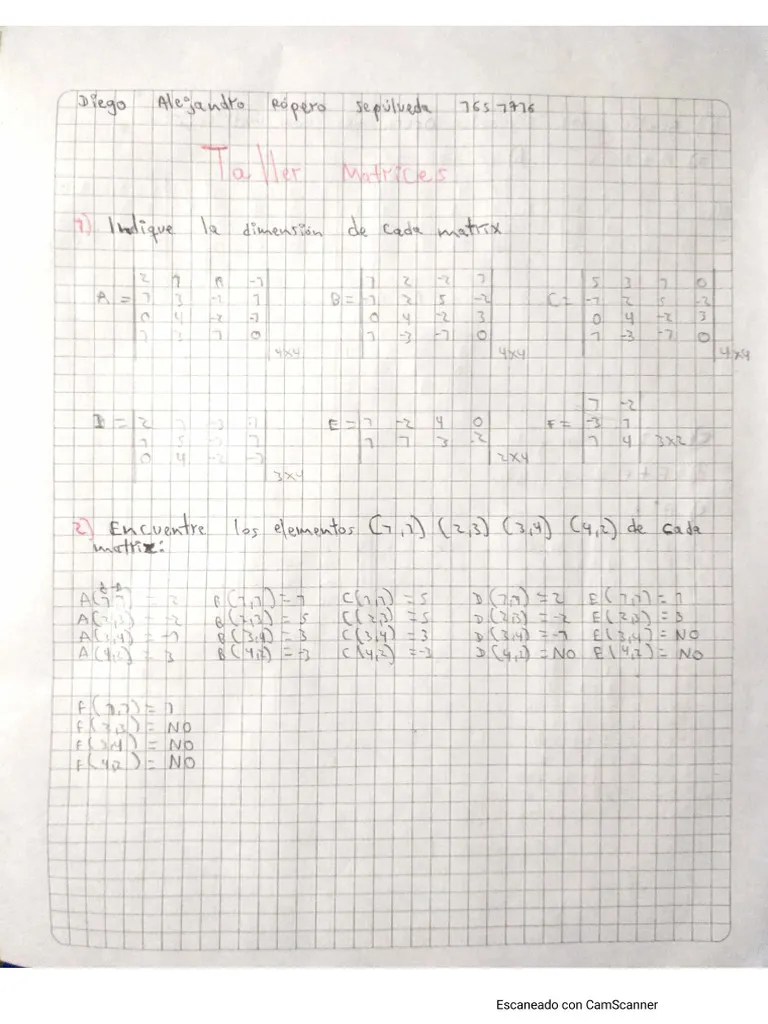 Diego Alejandro Rópero sepúlveda 1657776
Taller Matrices
1) Indique la dimensión de cada matrix
A = 2 1 0 -1
1 3 -1 1
0 4 -2 -1
1 3 1 0
4x4
B = 1 2 -2 1
-1 2 5 -2
0 4 -2 3
1 -3 -1 0
4x4
C = 5 3 1 0
-1 2 5 -2
0 4 -2 3
1 -3 -1 0
4x4
D = 2 -3
1 5 1
0 4 -2 -1
3x4
E = 1 -2 4 0
1 1 3 -2
2x4
F = 1 -2
-3 1
1 4
3x2
2) Encuentre los elementos (1,1) (2,3) (3,4) (4,2) de cada
matrix:
A(1,1) = 2 B(1,1) = 1 C(1,1) = 5 D(1,1) = 2 E(1,1) = 1
A(2,3) = -2 B(2,3) = 5 C(2,3) = 5 D(2,3) = -2 E(2,3) = 3
A(3,4) = -1 B(3,4) = 3 C(3,4) = 3 D(3,4) = -1 E(3,4) = NO
A(4,2) = 3 B(4,2) = -3 C(4,2) = -3 D(4,2) = NO E(4,2) = NO
F(1,1) = 1
F(2,3) = NO
F(3,4) = NO
F(4,2) = NO
Escaneado con CamScanner